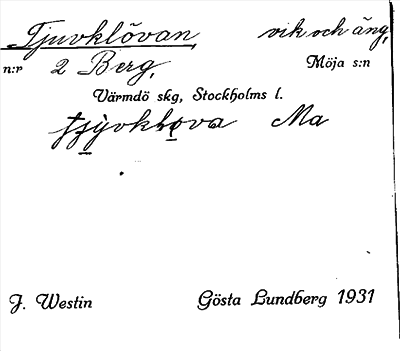 Tjuvklôvan, vik och äng,
n:r 2 Berg, Möja s:n
Värmdö skg, Stockholms l.
Ma
J. Westin Gösta Lundberg 1931